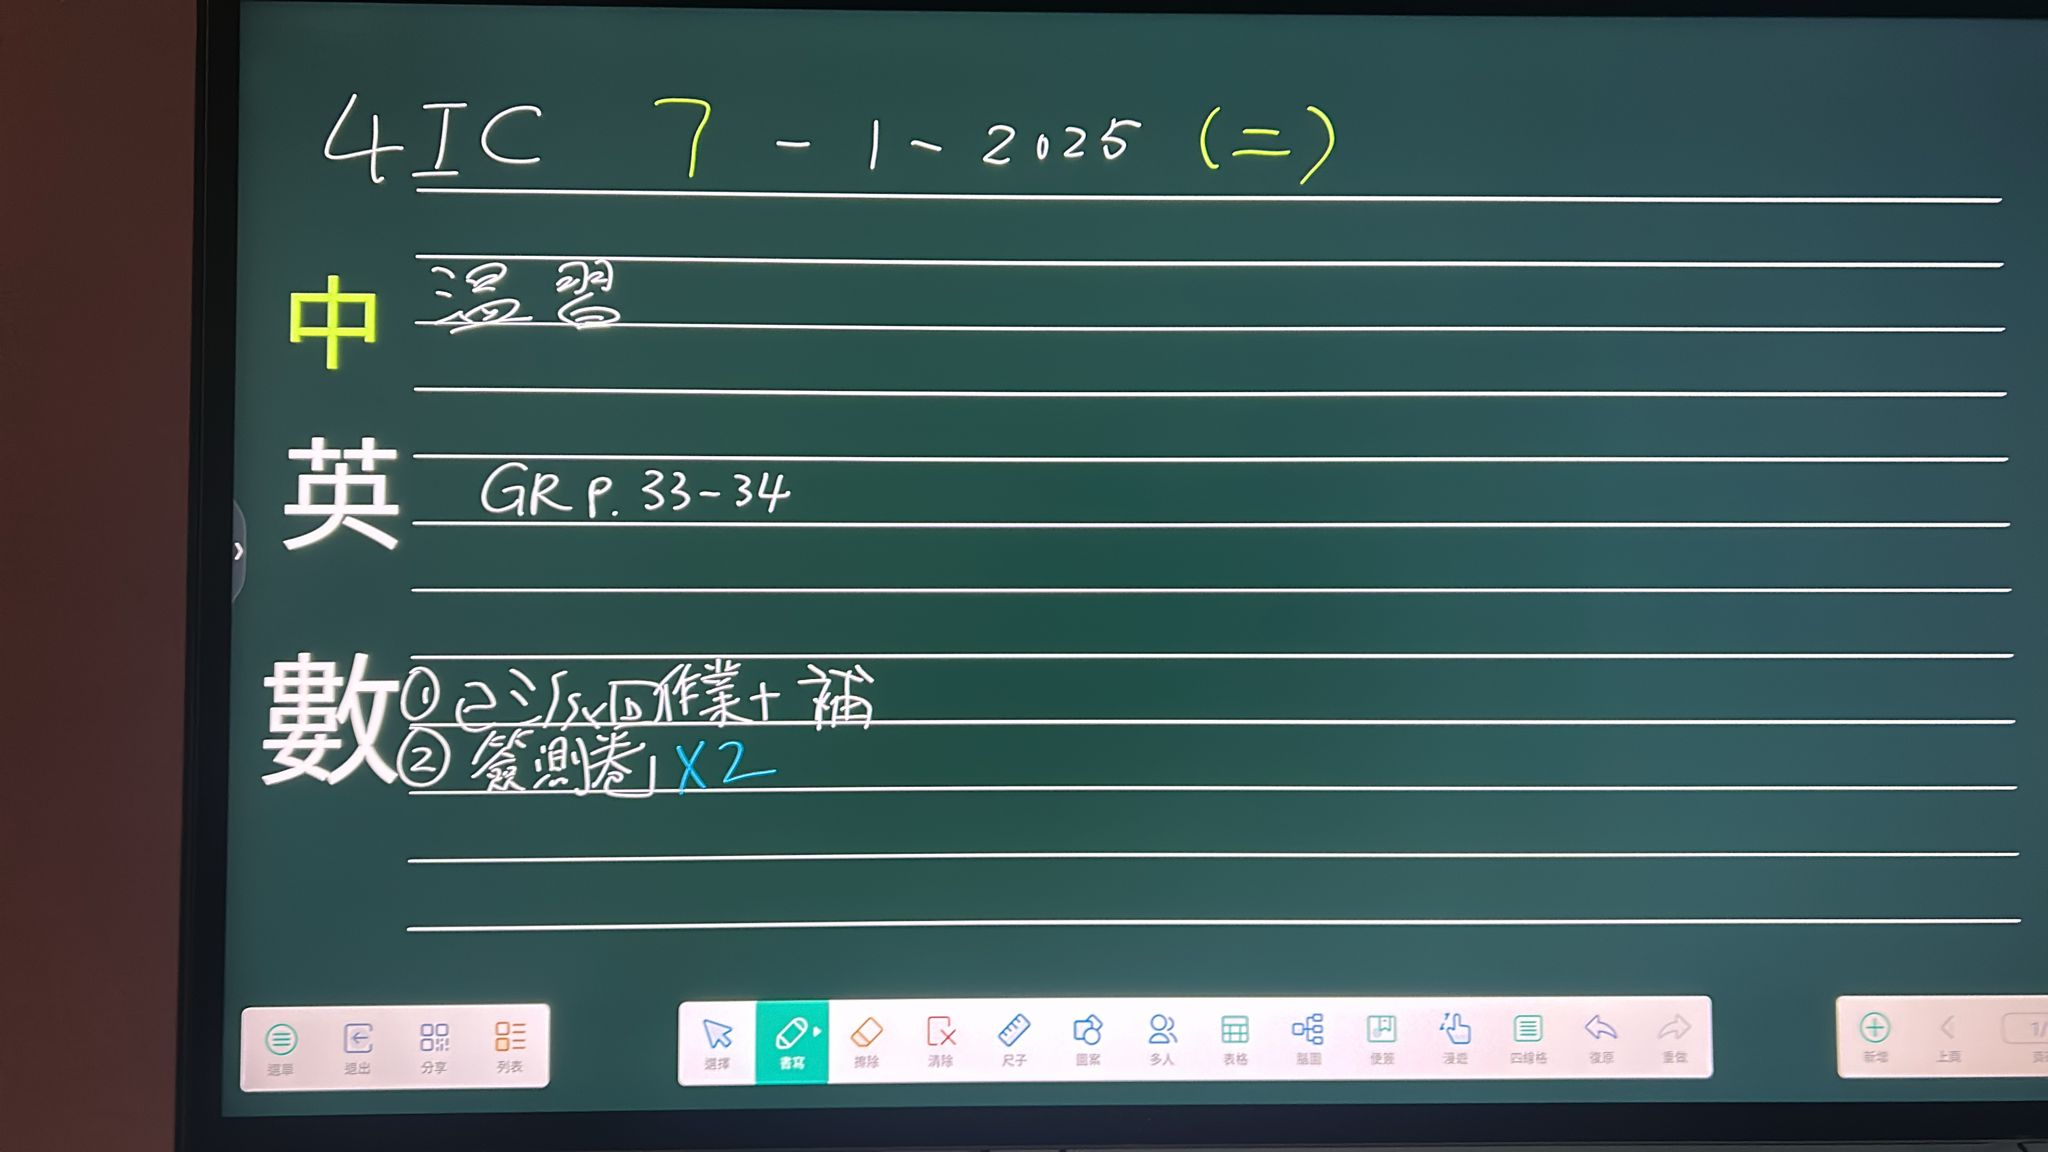 4IC 7-1-2025 (二)
中 溫習
英 GR P. 33-34
數 ① 已派回作業+補
② 簽測卷 X2
選單 退出 分享 列表 選擇 書寫 擦除 清除 尺子 圖案 多人 表格 腦圖 便簽 漫遊 四線格 復原 重做 新增 上頁 1/